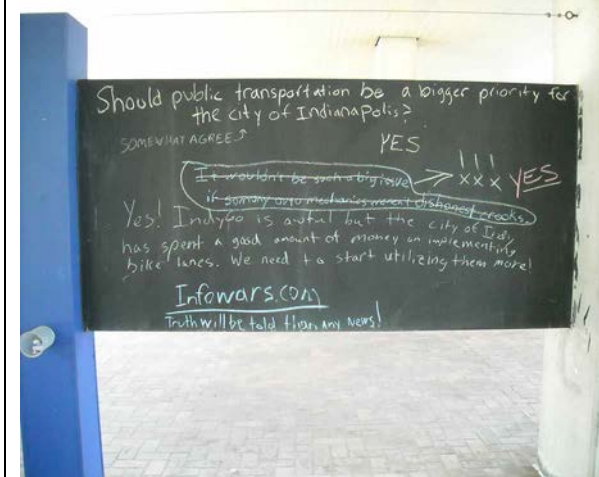 Should public transportation be a bigger priority for
the city of Indianapolis?
SOMEWHAT AGREE
YES
It wouldn't be such a big issue
if so many auto mechanics weren't dishonest crooks.
! ! !
X X X YES
Yes! IndyGo is awful but the city of Indy
has spent a good amount of money on implementing
bike lanes. We need to start utilizing them more!
Infowars.com
Truth will be told than any News!